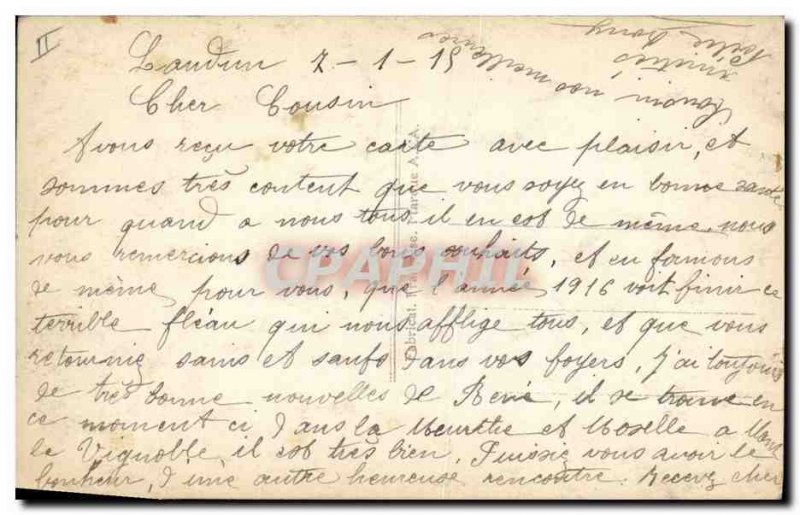 II
Laudun 7-1-15
Cher Cousin
Avons reçu votre carte avec plaisir, et
sommes très content que vous soyez en bonne santé,
pour quand a nous tous il en est de même, nous
vous remercions de vos bons souhaits, et en formons
de même pour vous, que l'année 1916 voit finir ce
terrible fléau qui nous afflige tous, et que vous
retournie sains et saufs dans vos foyers, J'ai toujours
de très bonne nouvelles de René, il se trouve en
ce moment ci dans la Meurthe et Moselle a Mont
le Vignoble il est très bien. Puissiez vous avoir le
bonheur, d'une autre heureuse rencontre. Recevez cher
Cousin nos meilleures
amitiés
Fabricat. Française. Marque A.
CPAPHIL